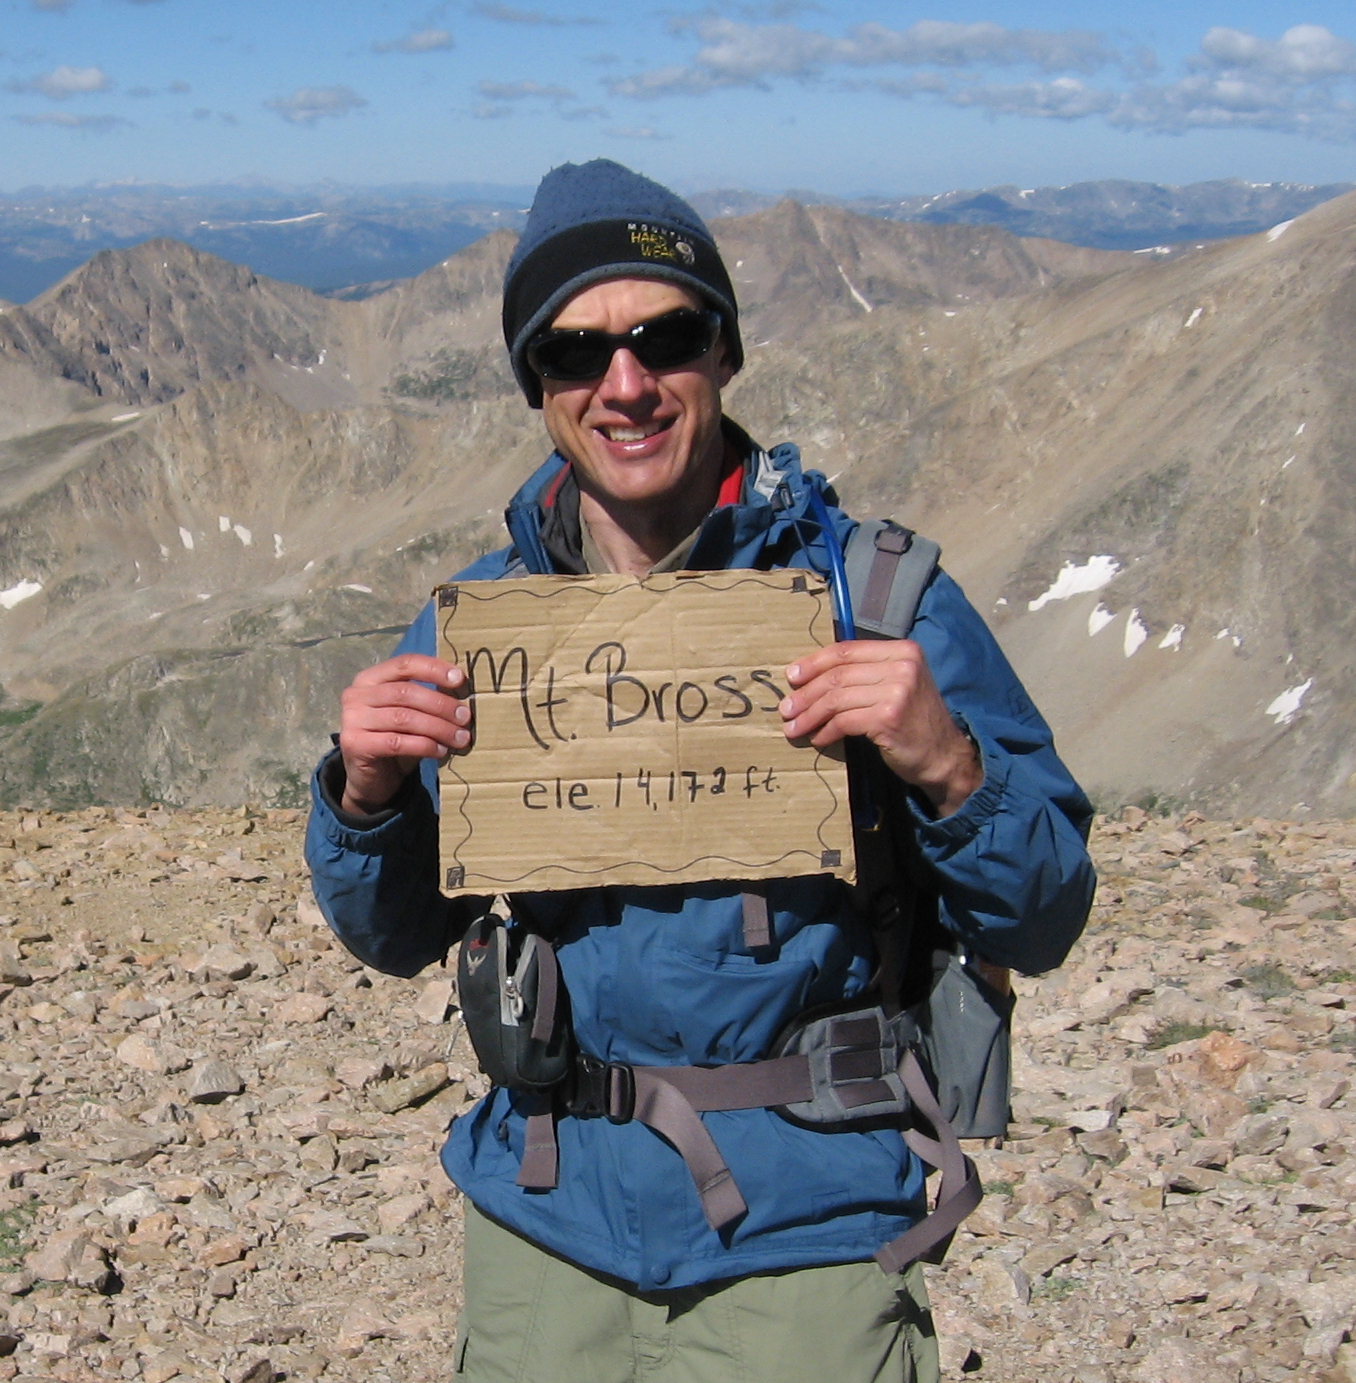 MOUNTAIN
HARD
WEAR
Mt. Bross
ele. 14,172 ft.